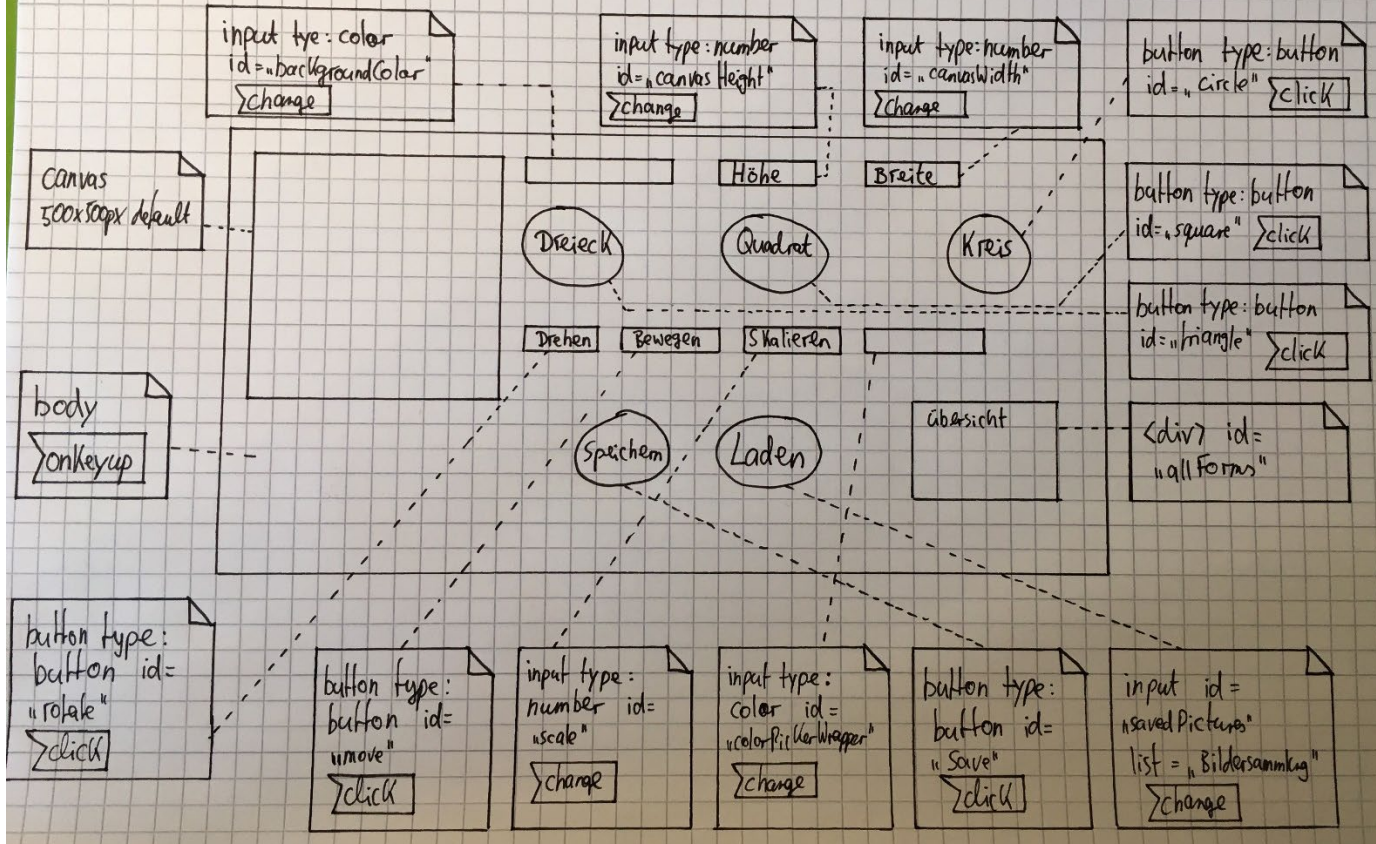 input tye: color
id="backgroundColor"
change
input type: number
id="canvas Height"
change
input type: number
id="canvasWidth"
change
button type: button
id="circle" click
canvas
500x500px default
Höhe
Breite
button type: button
id="square" click
Dreieck
Quadrat
Kreis
button type: button
id="triangle" click
Drehen
Bewegen
Skalieren
body
onKeyup
Speichern
Laden
übersicht
<div> id=
"allForms"
button type:
button id=
"rotate"
click
button type:
button id=
"move"
click
input type:
number id=
"scale"
change
input type:
color id=
"colorPickerWrapper"
change
button type:
button id=
"Save"
click
input id=
"savedPictures"
list = "Bildersammlung"
change